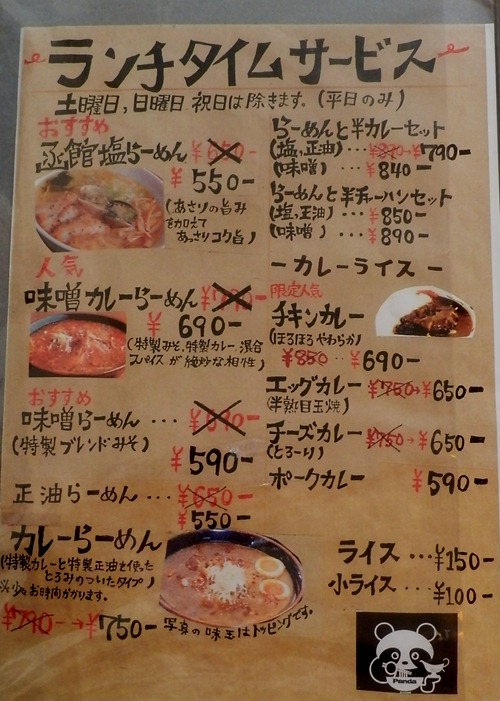 ランチタイムサービス
土曜日,日曜日 祝日は除きます。(平日のみ)
おすすめ
函館塩らーめん ¥650-
¥550-
(あさりの旨み
を加えて
あっさりコク旨)
人気
味噌カレーらーめん ¥790-
¥690-
(特製みそ、特製カレー、混合
スパイスが絶妙な相性)
おすすめ
味噌らーめん ... ¥690-
(特製ブレンドみそ)
¥590-
正油らーめん ... ¥650-
¥550-
カレーらーめん
(特製カレーと特製正油を使った
とろみのついたタイプ)
※少々お時間がかります。
¥790-→¥750-
写真の味玉はトッピングです。
らーめんと半カレーセット
(塩,正油) ... ¥820→¥790-
(味噌) ... ¥840-
らーめんと半チャーハンセット
(塩,正油) ... ¥850-
(味噌) ... ¥890-
-カレーライス-
限定人気
チキンカレー
(ほろほろやわらか)
¥850-→¥690-
エッグカレー ¥750-→¥650-
(半熟目玉焼)
チーズカレー ¥750→¥650-
(とろ〜り)
ポークカレー ¥590-
ライス ...¥150-
小ライス ... ¥100-
Panda